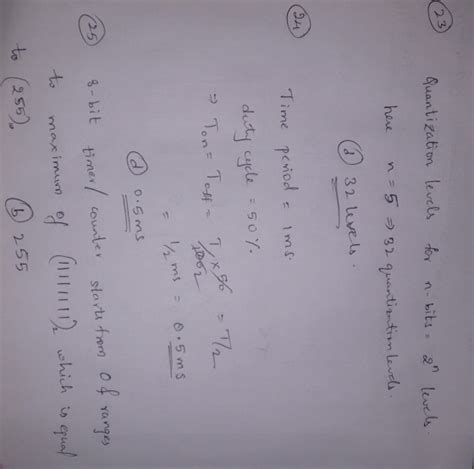 (23) Quantization levels for n-bits = 2ⁿ levels.
here n = 5 ⇒ 32 quantization levels.
(d) 32 levels.
(24) Time period = 1ms.
duty cycle = 50%.
⇒ Ton = Toff = T/100 × 50 = T/2
= 1/2 ms = 0.5 ms
(d) 0.5ms
(25) 8-bit timer/counter starts from 0 & ranges
to maximum of (11111111)₂ which is equal
to (255)₁₀ (b) 255